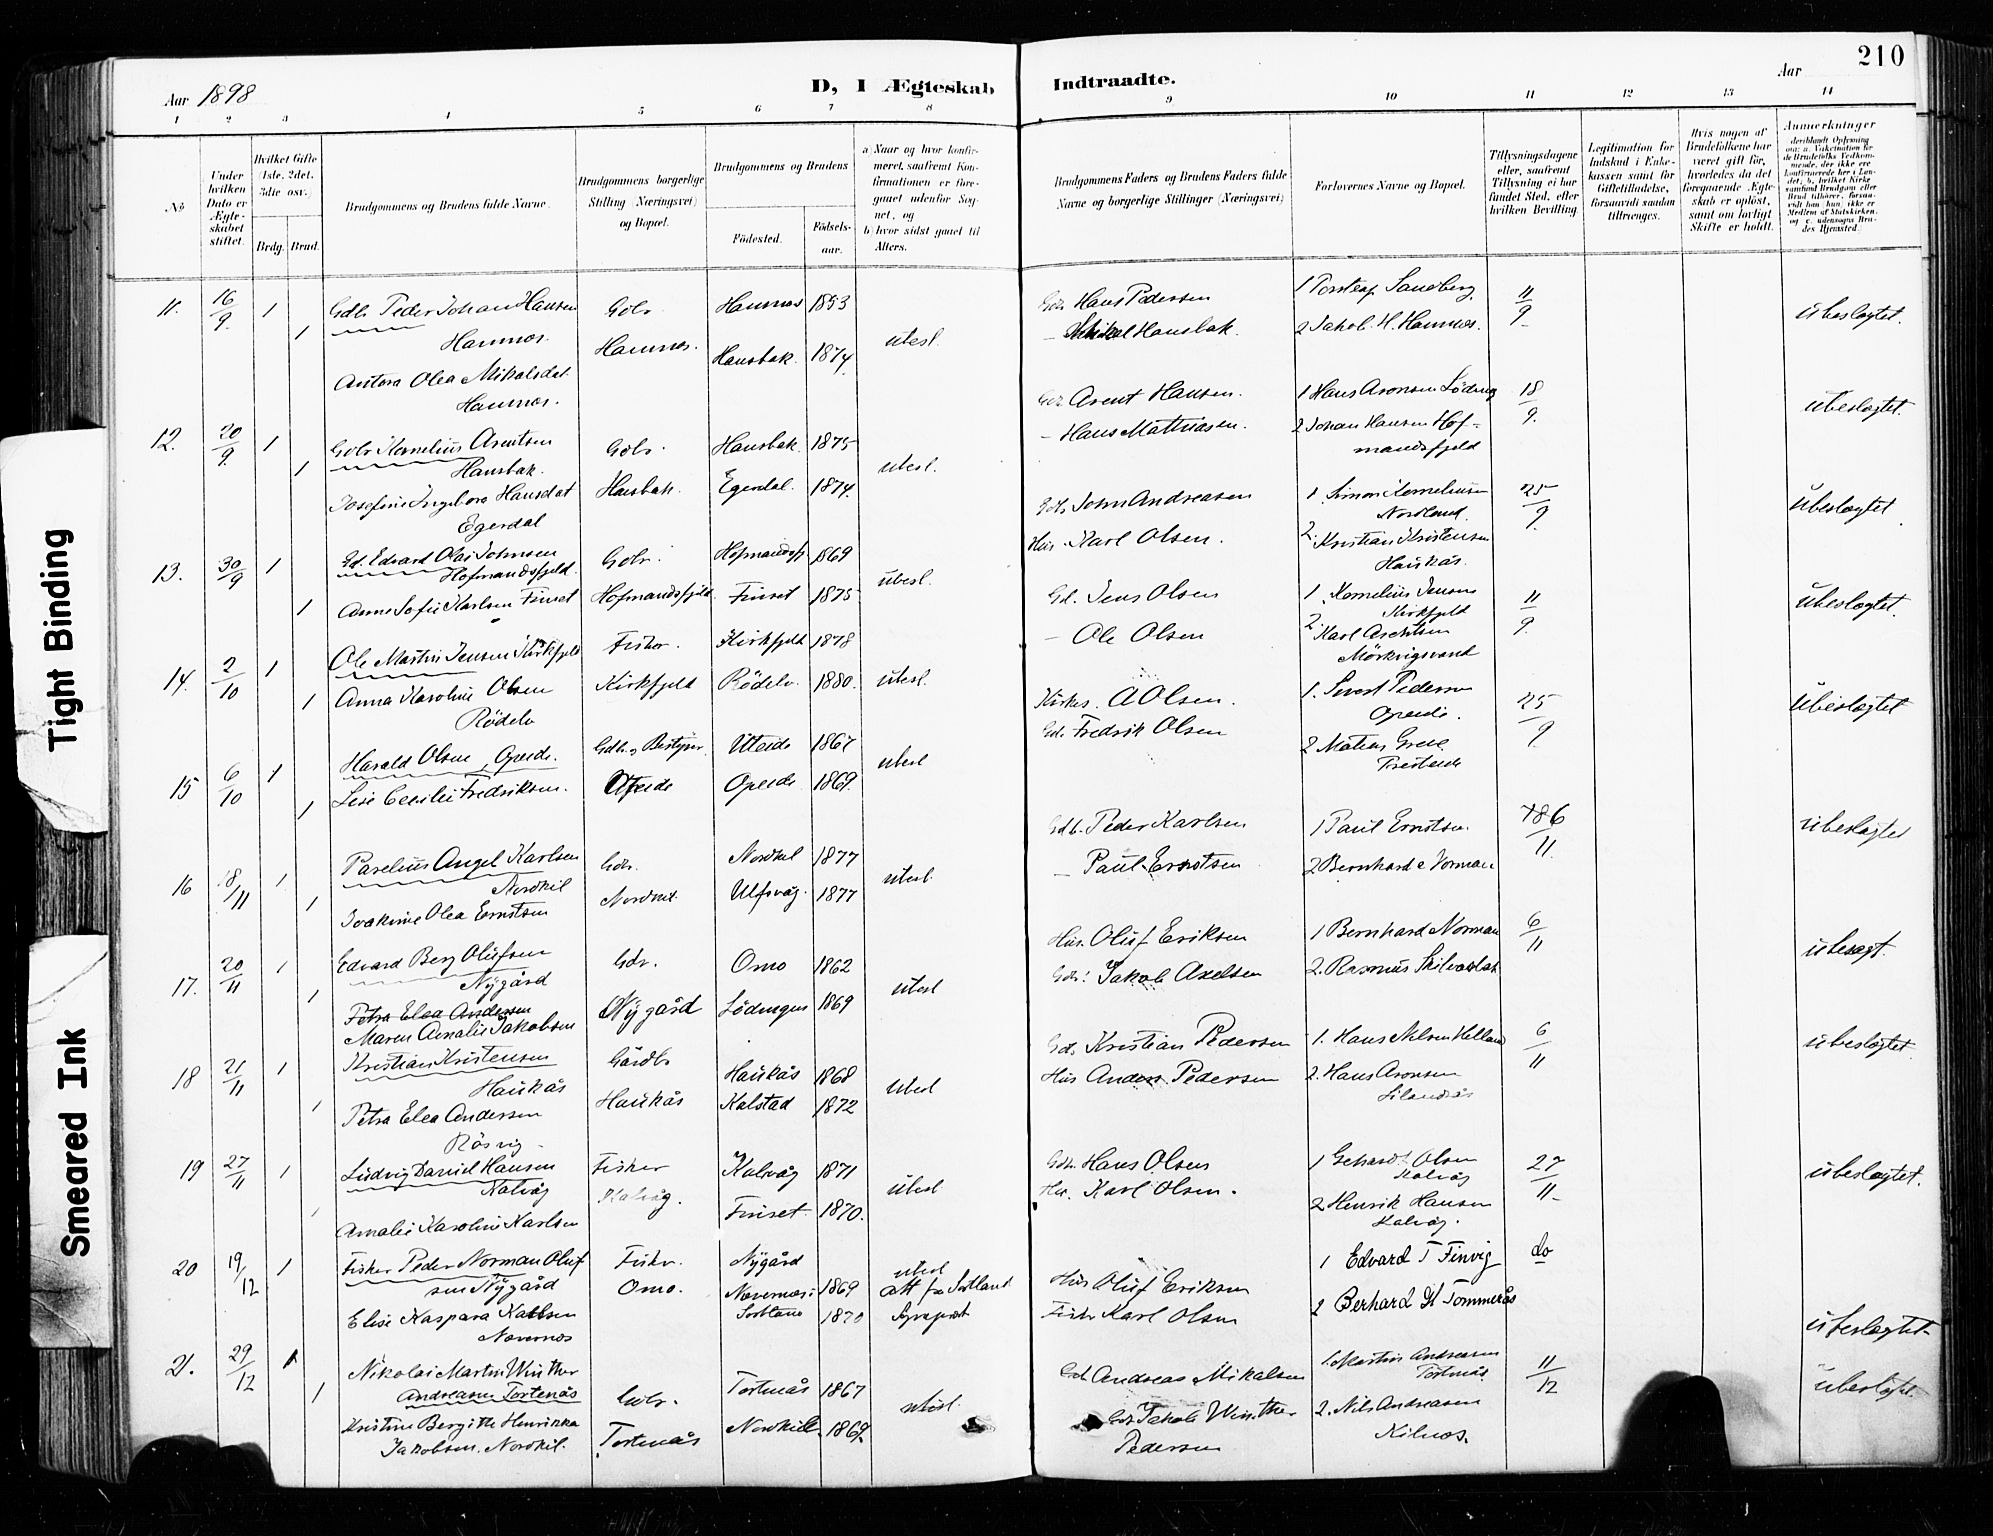 210
Aar 1898
D, I Ægteskab
Indtraadte.
Aar
1 2 3 4 5 6 7 8
9 10 11 12 13 14
No
Under hvilken Dato er Ægteskabet stiftet.
Hvilket Gifte (1ste. 2det. 3die osv.)
Brdg. Brud.
Brudgommens og Brudens fulde Navne.
Brudgommens borgerlige Stilling (Næringsvei) og Bopæl.
Brudgommens og Brudens
Födested.
Födselsaar.
a) Naar og hvor konfirmeret, saafremt Konfirmationen er foregaaet udenfor Sognet, og
b) hvor sidst gaaet til Alters.
Brudgommens Faders og Brudens Faders fulde Navne og borgerlige Stillinger (Næringsvei)
Forlovernes Navne og Bopæl.
Tillysningsdagene eller, saafremt Tillysning ei har fundet Sted, efter hvilken Bevilling.
Legitimation for Indskud i Enkekassen samt for Giftetilladelse, forsaavidt saadan tiltrænges.
Hvis nogen af Brudefolkene har været gift før, hvorledes da det foregaaende Ægteskab er opløst, samt om lovligt Skifte er holdt.
Anmerkninger
deriblandt Oplysning om: a. Vakcination for de Brudefolks Vedkommende, der ikke ere konfirmerede her i Landet; b. hvilket Kirkesamfund Brudgom eller Brud tilhører, forsaavidt han (hun) ikke er Medlem af Statskirken, og c. udensogns Brudes Hjemsted.
11. 16/9. 1 Gdbr Peder Johan Hansen Gdbr Hamnes 1853
Hamnes.
1 Antora Olea Mikalsdat. Hamnes. Hansbak. 1874. ubesl.
Hamnes.
Gdbr Hans Pedersen 1 Sandberg. 11/9 ubeslægtet.
- Mikal Hansbak. 2 Jakob H. Hamnes.
12. 20/9. 1 Gdbr Kornelius Arentsen Gdbr. Hansbak. 1875
Hansbak.
1 Josefine Ingebora Hansdat Hansbak. Egerdal. 1874. ubesl.
Egerdal
Gdbr Arent Hansen. 1 Hans Aronsen 18/9. ubeslægtet.
- Hans Mathiasen. 2 Johan Hansen Hofmandsfjeld
13. 30/9 1 Gd. Edvard Olai Johnsen Gdbr. Hofmandsfj 1869
Hofmandsfjeld.
1 Anne Sofie Karlsen Finset Hofmandsfjeld Finset 1875 ubesl.
Gdbr John Andreasen 1. Simon Kornelius 25/9. ubeslægtet
Nordland.
Hus. Karl Olsen. 2. Kristian Kristensen
Haukås.
14. 2/10 1 Ole Martin Jensen Kirkfjeld Fisker. Kirkfjeld 1878
1 Anna Karoline Olsen Kirkfjeld Rödelv. 1880. ubesl.
Rödelv
Gd. Jens Olsen 1. Kornelius Jensen 11/9. ubeslægtet.
Kirkfjeld
- Ole Olsen 2. Karl
Mörkvigsvand
15 6/10 1 Harald Olsen, Opeide. Gdb. og Bestyrer Uteide 1867
1 Lise Cecilie Fredriksen. Opeide Opeide 1869. ubesl
Kirkes. A Olsen. 1. Pedersen 25/9. ubeslægtet
Opeide.
Gdbr Fredrik Olsen 2 Matias
16 18/11 1 Parelius Angel Karlsen Gdbr. Nordkil 1877
Nordkil
1 Joakime Olea Ernstsen Nordkil. Ulfsvåg. 1877 ubesl.
Gdb. Peder Karlsen 1 Paul Ernstsen. 6/11. ubeslægtet
- Paul Ernstsen 2 Bernhard Norman
17. 20/11 1 Edvard Berg Olufsen Gdbr. Omo 1862
Nygård
Petra Elea Andersen
1 Maren Amalie Jakobsen Nygård Lödingen 1869 ubesl
Hus. Oluf Eriksen 1 Bernhard Norman 6/11 ubeslægt.
Gdbr. Jakob Axelsen 2. Rasmus
18 21/11 1 Kristian Kristensen Gårdbr Haukås 1868
Haukås
1 Petra Elea Andersen Haukås Kalstad 1872 ubesl
Råsvig
Gdbr Kristian Pedersen 1. Hans Nilsen Helland 6/11 ubeslægtet.
Hus Anders Pedersen 2. Hans Aronsen
19 27/11 1 Ludvig Daniel Hansen Fisker Kalvåg 1871
Kalvåg
Amalie Karoline Karlsen Kalvåg. Finset. 1870. ubesl
Gdbr. Hans Olsen 1 Gehard Olsen 27/11. ubeslægtet.
Kalvåg
Hus. Karl Olsen. 2 Henrik Hansen
Kalvåg.
20 19/12 1 Fisker Peder Norman Olufsen Nygård Fisker. Nygård 1869 ubesl
Elise Kaspara Karlsen Omo. Nævernes i Sortland 1870 att fra Sortland Sognepræst
Nævernes
Hus Oluf Eriksen 1 Edvard T Finvig do
Fisker Karl Olsen 2 Berhard H Tommerås ubeslægtet
21. 29/12 1 Nikolai Martin Winther Gdbr. Tortenås 1867
Andreasen Tortenås
1 Kristine Bergitte Henrikka Tortenås Nordkill 1869. ubesl.
Jakobsen. Nordkil.
Gd. Andreas Mikalsen 1. Martin Andreasen 11/12 ubeslægtet
Tortenås
Gdbr Jakob Winther 2. Nils Andreasen
Pedersen Kilnes.
Tight Binding
Smeared Ink